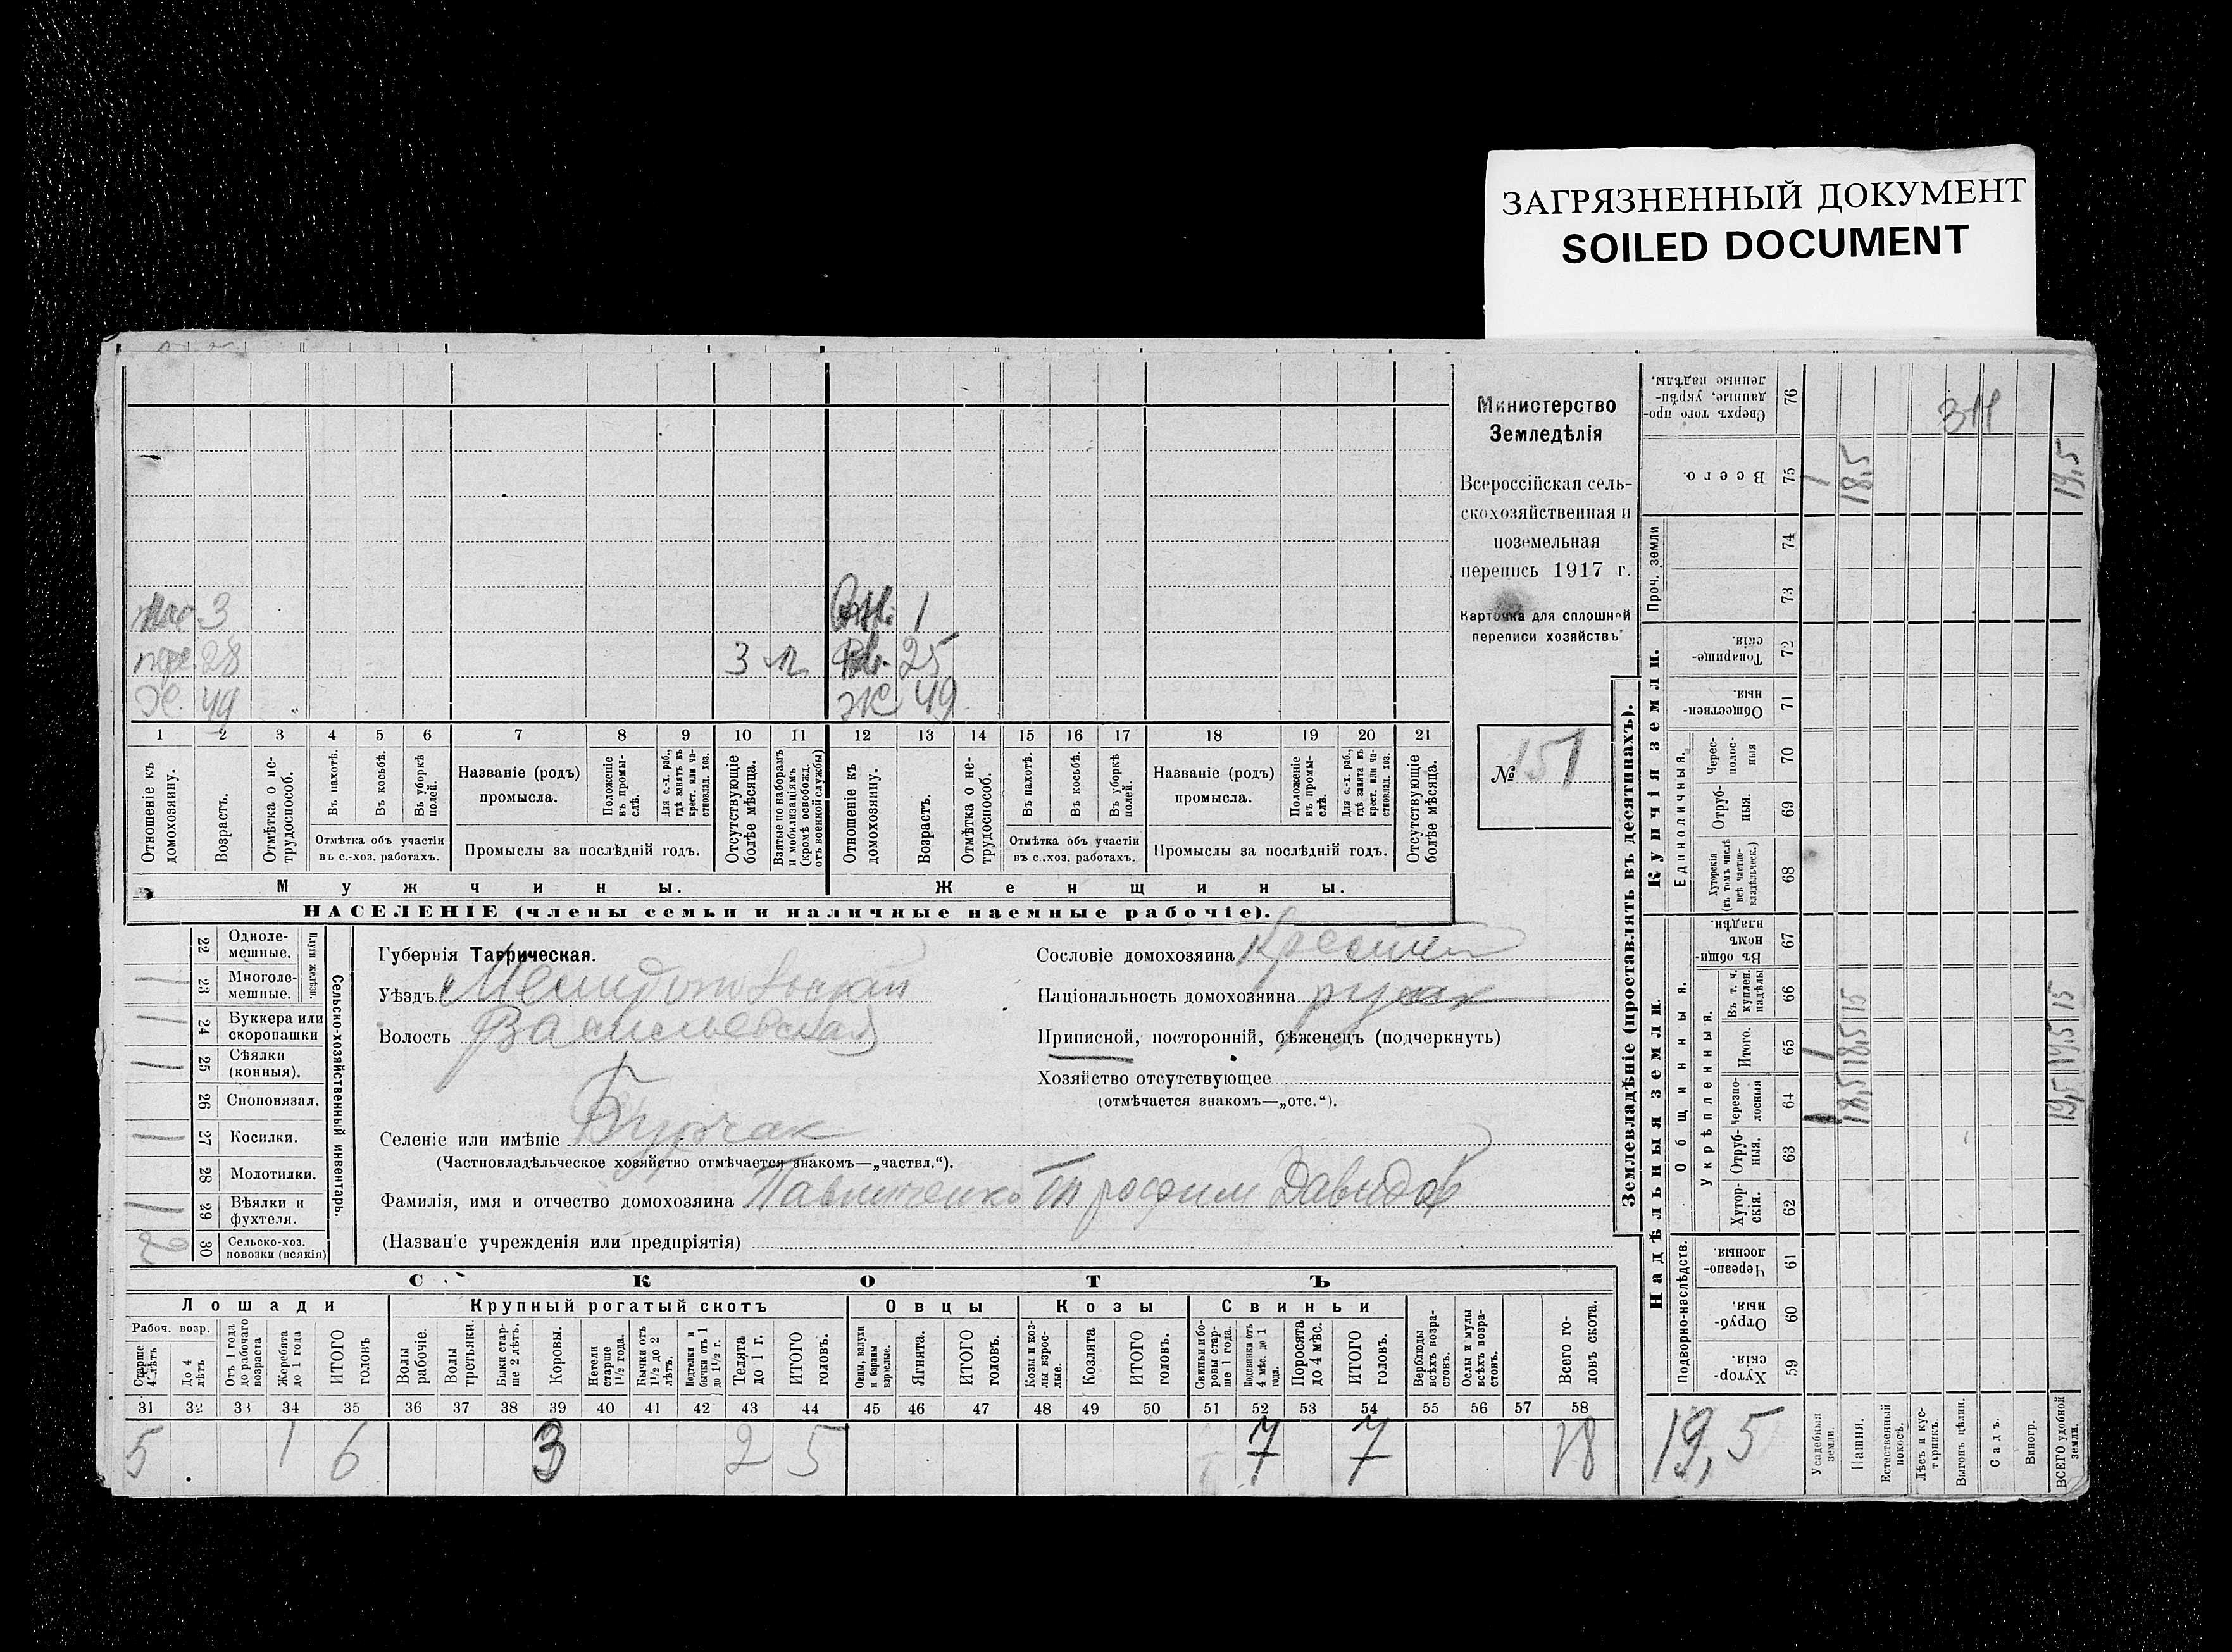 ЗАГРЯЗНЕННЫЙ ДОКУМЕНТ
SOILED DOCUMENT
3
1
28
3
25
Х. 49
Ж 49
1 2 3 4 5 6 7 8 9 10 11 12 13 14 15 16 17 18 19 20 21
Отношеніе къ домохозяину.
Возрастъ.
Отмѣтка о не-трудоспособ.
Въ пахотѣ.
Въ косьбѣ.
Въ уборкѣ полей.
Отмѣтка объ участіи въ с.-хоз. работахъ.
Названіе (родъ) промысла.
Положеніе въ промы-слѣ.
Для с.-х. раб., гдѣ занятъ въ крест. или ча-ствовлад. хоз.
Промыслы за послѣдній годъ.
Отсутствующіе болѣе мѣсяца.
Взятые по наборамъ и мобилизаціямъ (кромѣ освобожд. отъ военной службы)
Отношеніе къ домохозяину.
Возрастъ.
Отмѣтка о не-трудоспособ.
Въ пахотѣ.
Въ косьбѣ.
Въ уборкѣ полей.
Отмѣтка объ участіи въ с.-хоз. работахъ.
Названіе (родъ) промысла.
Положеніе въ промы-слѣ.
Для с.-х. раб., гдѣ занята въ крест. или ча-ствовлад. хоз.
Промыслы за послѣдній годъ.
Отсутствующіе болѣе мѣсяца.
Мужчины.
Женщины.
НАСЕЛЕНІЕ (члены семьи и наличные наемные рабочіе).
Министерство
Земледѣлія
Всероссійская сель-
скохозяйственная и
поземельная
перепись 1917 г.
Карточка для сплошной
переписи хозяйствъ
№ 151
Сельско-хозяйственный инвентарь.
Плуги желѣзн.
22 Одноле-мешные.
1 23 Многоле-мешные.
1 24 Буккера или скоропашки
1 25 Сѣялки (конныя).
26 Сноповязал.
1 27 Косилки.
28 Молотилки.
1 29 Вѣялки и фухтеля.
2 30 Сельско-хоз. повозки (всякія)
Губернія Таврическая.
Уѣздъ Мелитопольскій
Волость Васильевская
Селеніе или имѣніе Бурчак
(Частновладѣльческое хозяйство отмѣчается знакомъ—„частвл.“).
Фамилія, имя и отчество домохозяина Павличенко Трофим Давидов
(Названіе учрежденія или предпріятія)
Сословіе домохозяина Крестьян
Національность домохозяина русск
Приписной, посторонній, бѣженецъ (подчеркнуть)
Хозяйство отсутствующее
(отмѣчается знакомъ—„отс.“).
СКОТЪ
Лошади
Крупный рогатый скотъ
Овцы
Козы
Свиньи
Рабоч. возр.
Старше 4 лѣтъ
До 4 лѣтъ
Отъ 1 года до рабочаго возраста
Жеребята до 1 года
ИТОГО головъ
Волы рабочіе.
Волы третьяки.
Быки стар-ше 2 лѣтъ.
Коровы.
Нетели старше 1½ года.
Бычки отъ 1½ до 2 лѣтъ.
Подтелки и бычки отъ 1 до 1½ г.
Телята до 1 г.
ИТОГО головъ.
Овцы, валухи и бараны взрослые.
Ягнята.
ИТОГО головъ.
Козы и коз-лы взрос-лые.
Козлята
ИТОГО головъ.
Свиньи и бо-ровы стар-ше 1 года.
Подсвинки отъ 4 мѣс. до 1 года.
Поросята до 4 мѣс.
ИТОГО головъ.
Верблюды всѣхъ возра-стовъ.
Ослы и мулы всѣхъ возра-стовъ.
Всего го-ловъ скота.
31 32 33 34 35 36 37 38 39 40 41 42 43 44 45 46 47 48 49 50 51 52 53 54 55 56 57 58
5 1 6 3 2 5 7 7 18
Землевладѣніе (проставлять въ десятинахъ).
Надѣльныя земли.
Купчія земли.
Проч. земли
Подворно-наслѣдств.
Общинныя.
Укрѣпленныя.
Единоличныя.
76 Сверхъ того про-данные, укрѣп-ленные надѣлы.
75 Всего.
74
73
72 Товарище-скія.
71 Обществен-ныя.
70 Черес-полос-ныя
69 Отруб-ныя.
68 Хуторскія (въ томъ числѣ всѣ частно-владѣльческ.)
67 Въ общин-номъ владѣн.
66 Въ т. ч. куплен. надѣлы
65 Итого.
64 Черезпо-лосныя
63 Отруб-ныя.
62 Хутор-скія.
61 Черезпо-лосныя.
60 Отруб-ныя.
59 Хутор-скія.
1
18,5
19,5
15
18,5
1
18,5
15
19,5
19,5
19,5
Усадебныя земли.
Пашня.
Естественный покосъ.
Лѣсъ и кус-тарникъ.
Выгонъ цѣлин.
Садъ.
Виногр.
ВСЕГО удобной земли.